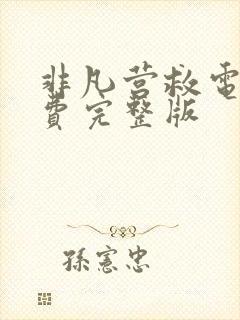 非凡营救電
費完整版
孫憲忠